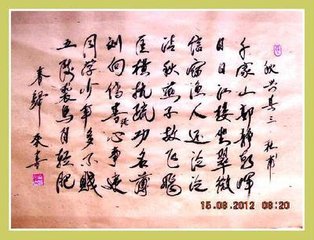 秋兴其三 杜甫
千家山郭静朝晖
日日江楼坐翠微
信宿渔人还泛泛
清秋燕子故飞飞
匡衡抗疏功名薄
刘向传经心事违
同学少年多不贱
五陵裘马自轻肥
15.08.2012 08:20